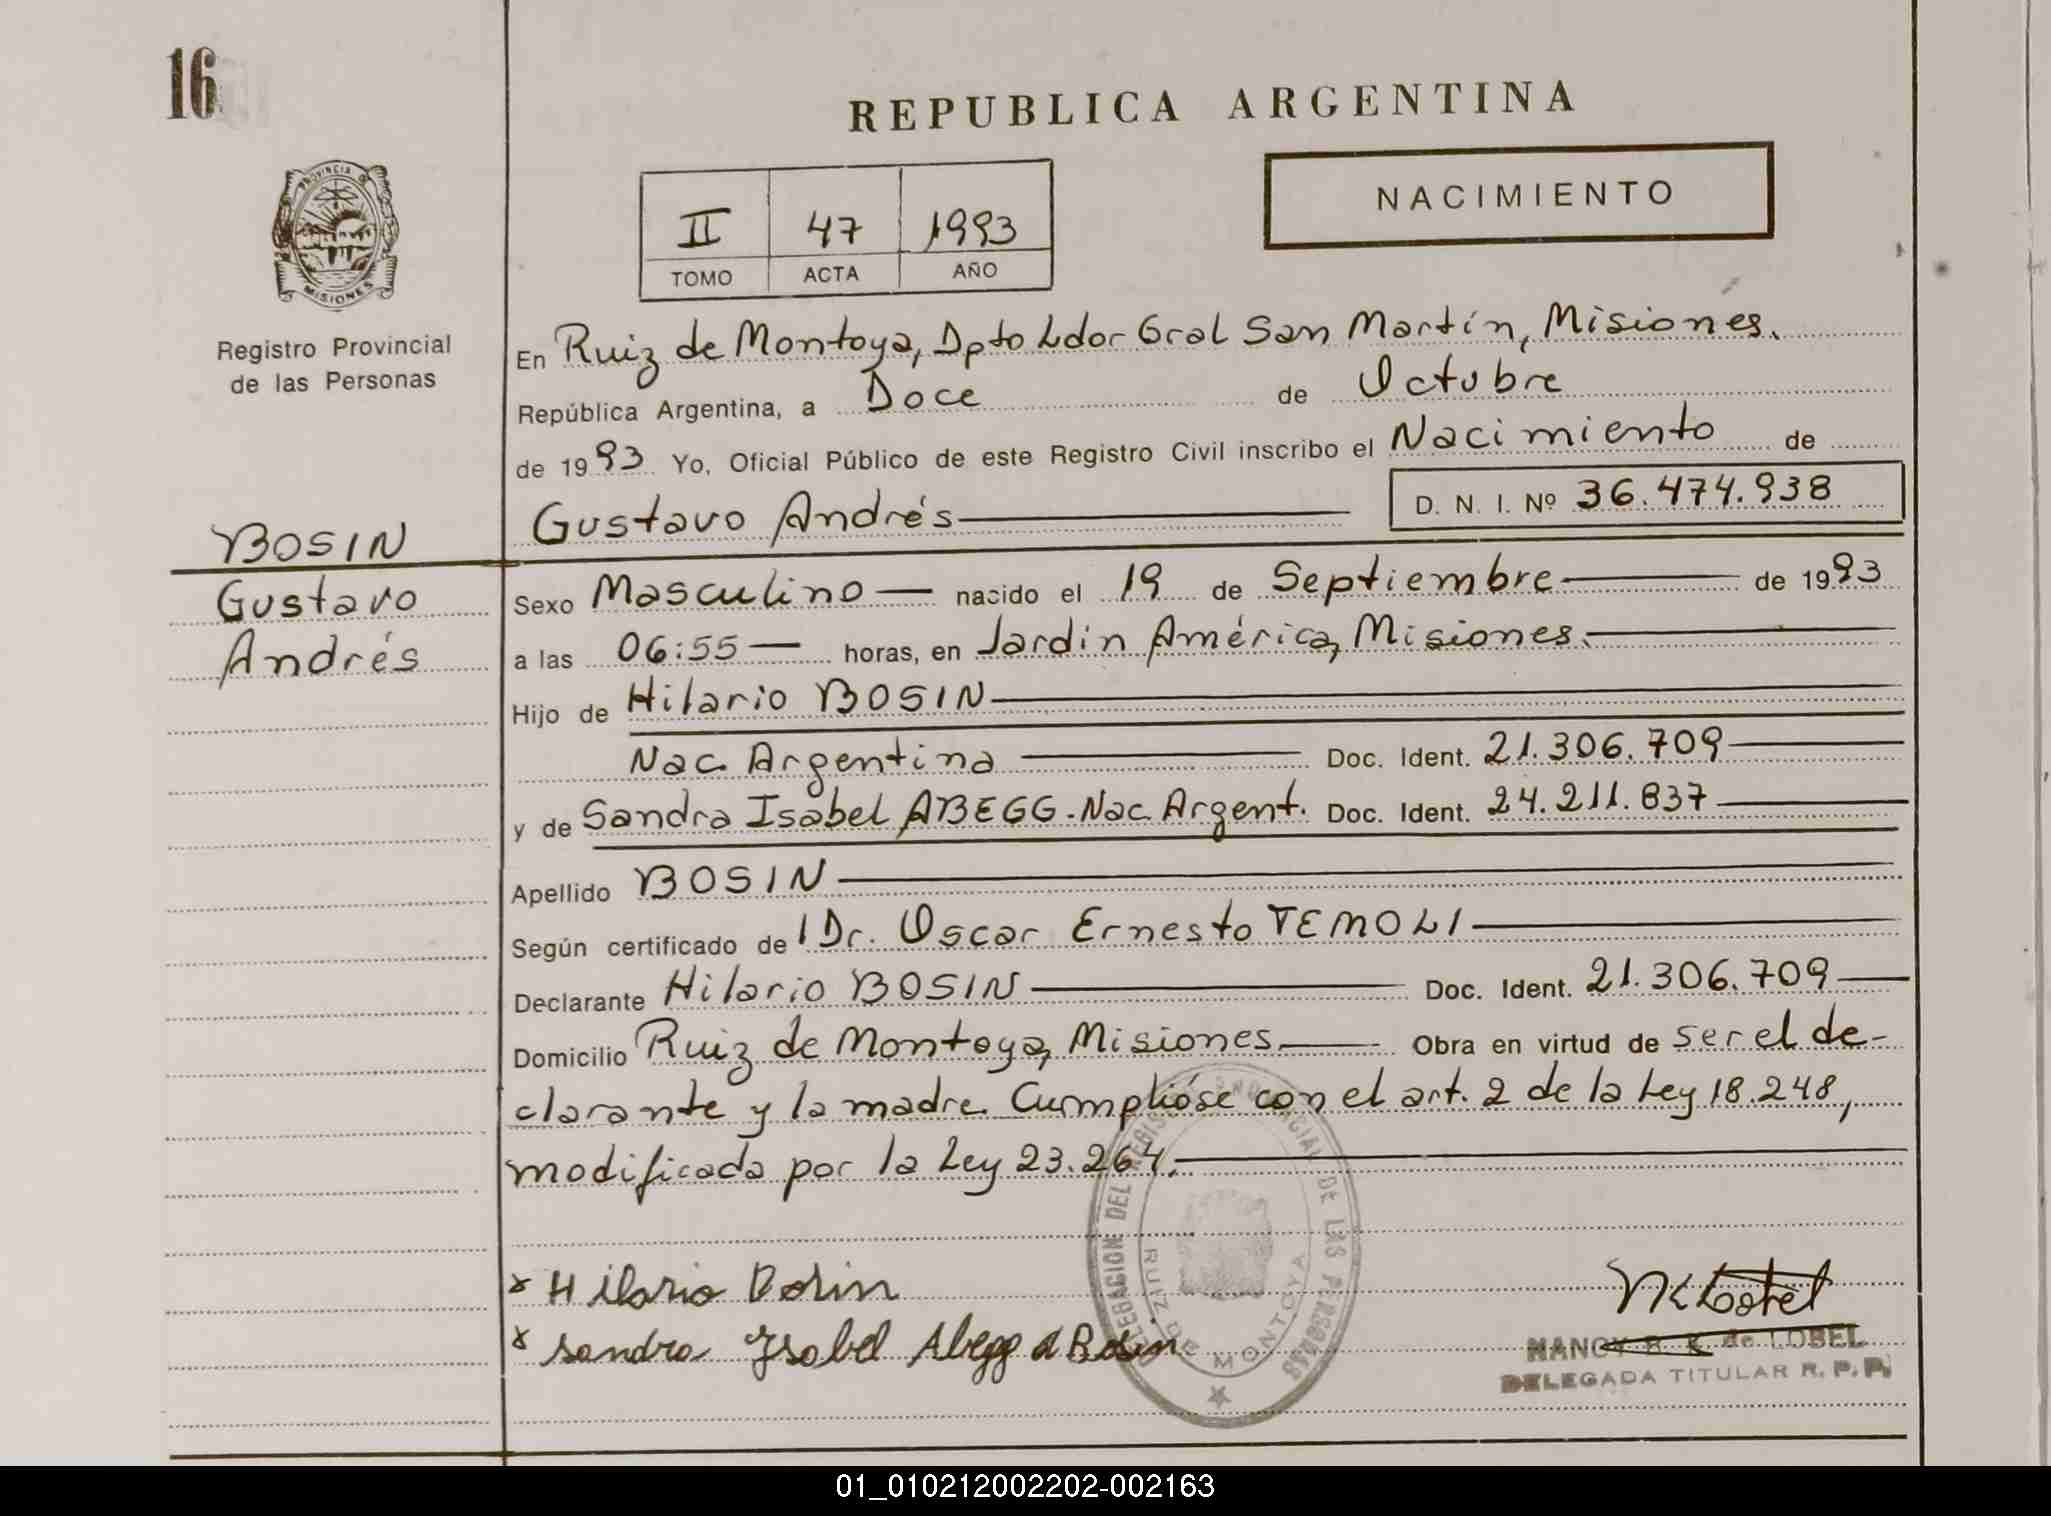 16
REPUBLICA ARGENTINA
PROVINCIA DE
MISIONES
Registro Provincial
de las Personas
II 47 1993
TOMO ACTA AÑO
NACIMIENTO
En Ruiz de Montoya, Dpto Ldor Gral San Martín, Misiones.
República Argentina, a Doce de Octubre
de 1993 Yo, Oficial Público de este Registro Civil inscribo el Nacimiento de
Gustavo Andrés D. N. I. Nº 36.474.938
BOSIN
Gustavo
Andrés
Sexo Masculino nacido el 19 de Septiembre de 1993
a las 06:55 horas, en Jardín América, Misiones.
Hijo de Hilario BOSIN
Nac. Argentina Doc. Ident. 21.306.709
y de Sandra Isabel ABEGG. Nac. Argent. Doc. Ident. 24.211.837
Apellido BOSIN
Según certificado de l Dr. Oscar Ernesto TEMOLI
Declarante Hilario BOSIN Doc. Ident. 21.306.709
Domicilio Ruiz de Montoya, Misiones Obra en virtud de ser el de-
clarante y la madre. Cumplióse con el art. 2 de la Ley 18.248,
modificada por la Ley 23.264.
DELEGACION DEL REGISTRO PROVINCIAL DE LAS PERSONAS
RUIZ DE MONTOYA
x Hilario Bosin
x Sandra Ysabel Abegg d Bosin
NANCY B. K. de LOBEL
DELEGADA TITULAR R. P. P.
01_010212002202-002163